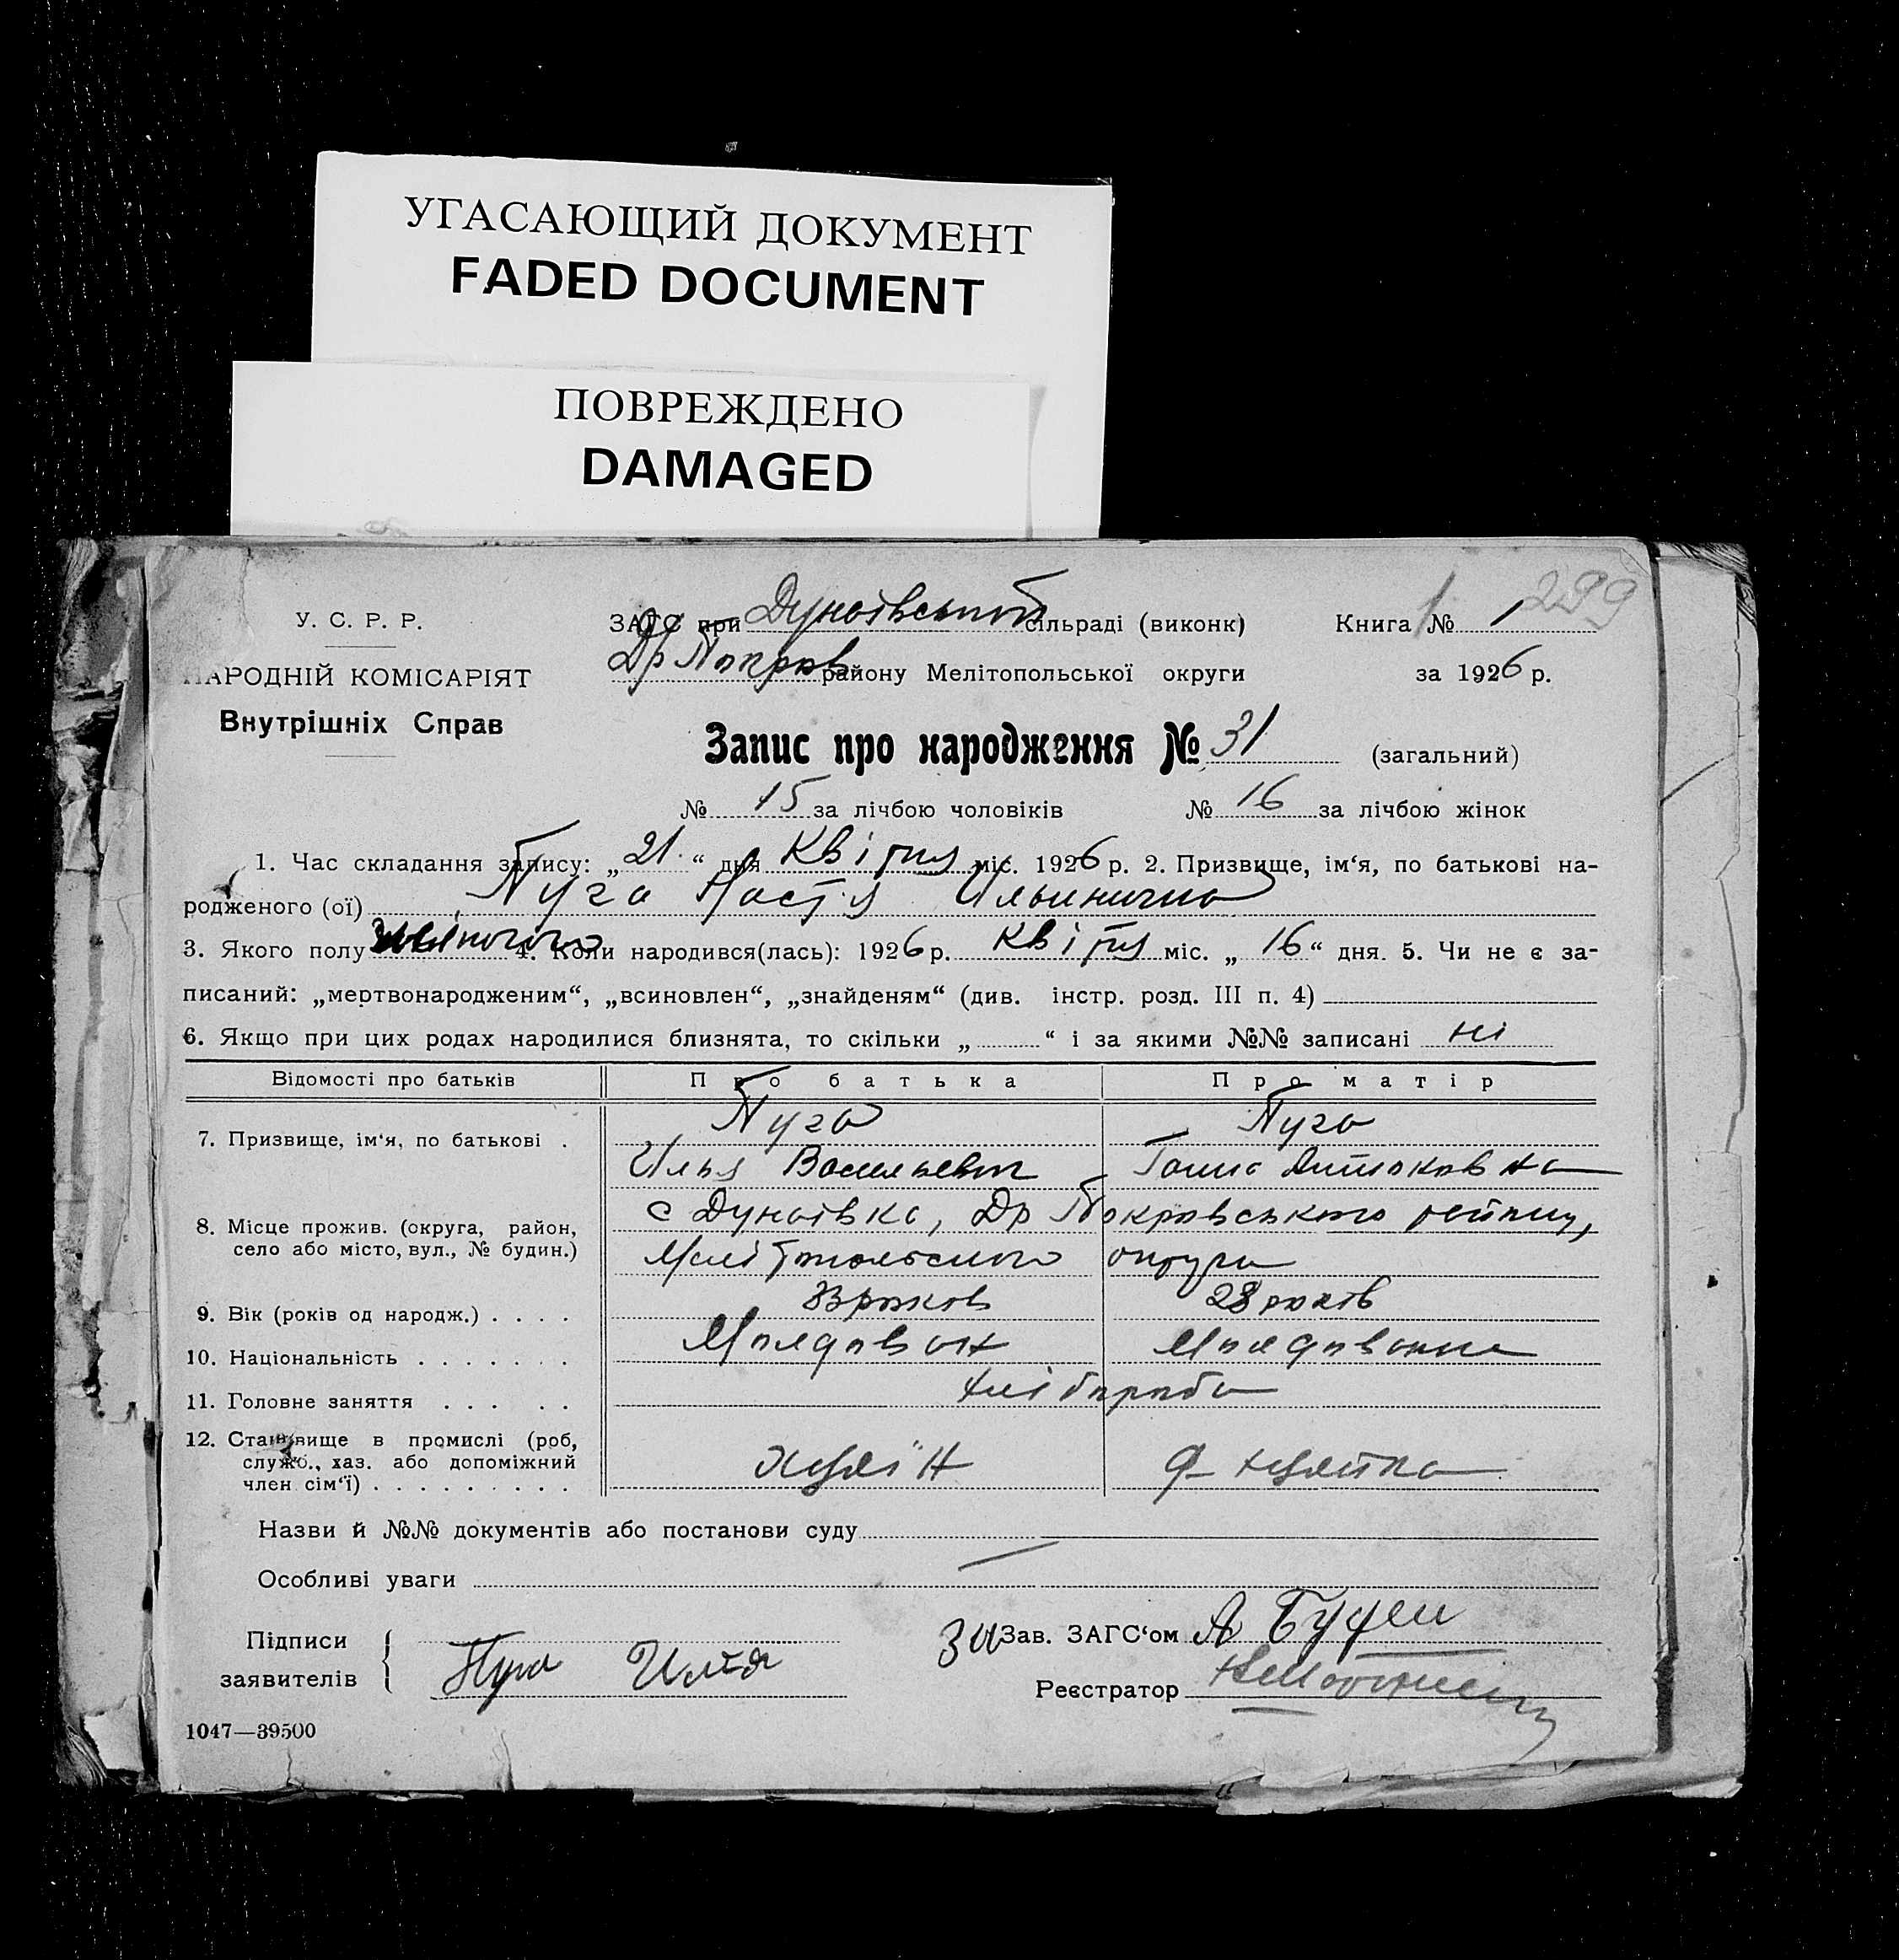 УГАСАЮЩИЙ ДОКУМЕНТ
FADED DOCUMENT
ПОВРЕЖДЕНО
DAMAGED
299
У. С. Р. Р.
НАРОДНІЙ КОМІСАРІЯТ
Внутрішніх Справ
ЗАГС при Дунаївській сільраді (виконк)
Др Покров району Мелітопольської округи
Книга № 1
за 1926 р.
Запис про народження № 31 (загальний)
№ 15 за лічбою чоловіків № 16 за лічбою жінок
1. Час складання запису: „21“ дня Квітня міс. 1926 р. 2. Призвище, ім‘я, по батькові на-
родженого (ої) Пуга Настя Ильинична
3. Якого полу 4. Коли народився(лась): 1926 р. Квітня міс. „16“ дня. 5. Чи не є за-
писаний: „мертвонародженим“, „всиновлен“, „знайденям“ (див. інстр. розд. III п. 4)
6. Якщо при цих родах народилися близнята, то скільки „ “ і за якими №№ записані ні
Відомості про батьків Про батька Про матір
7. Призвище, ім‘я, по батькові . Пуга Пуга
Илья Васильевич Ганна
8. Місце прожив. (округа, район,
село або місто, вул., № будин.)
с Дунаївка, Др Покровського району,
Мелітопольского округи
9. Вік (років од народж.) . . . . років 28 років
10. Національність . . . . . . . Молдован Молдованка
11. Головне заняття . . . . . хлібороба
12. Становище в промислі (роб,
служб., хаз. або допоміжний
член сім‘ї) . . . . . . . . .
хазяїн
Назви й №№ документів або постанови суду
Особливі уваги
Підписи
заявителів
Пуга Илья
За Зав. ЗАГС‘ом А
Реєстратор
1047—39500